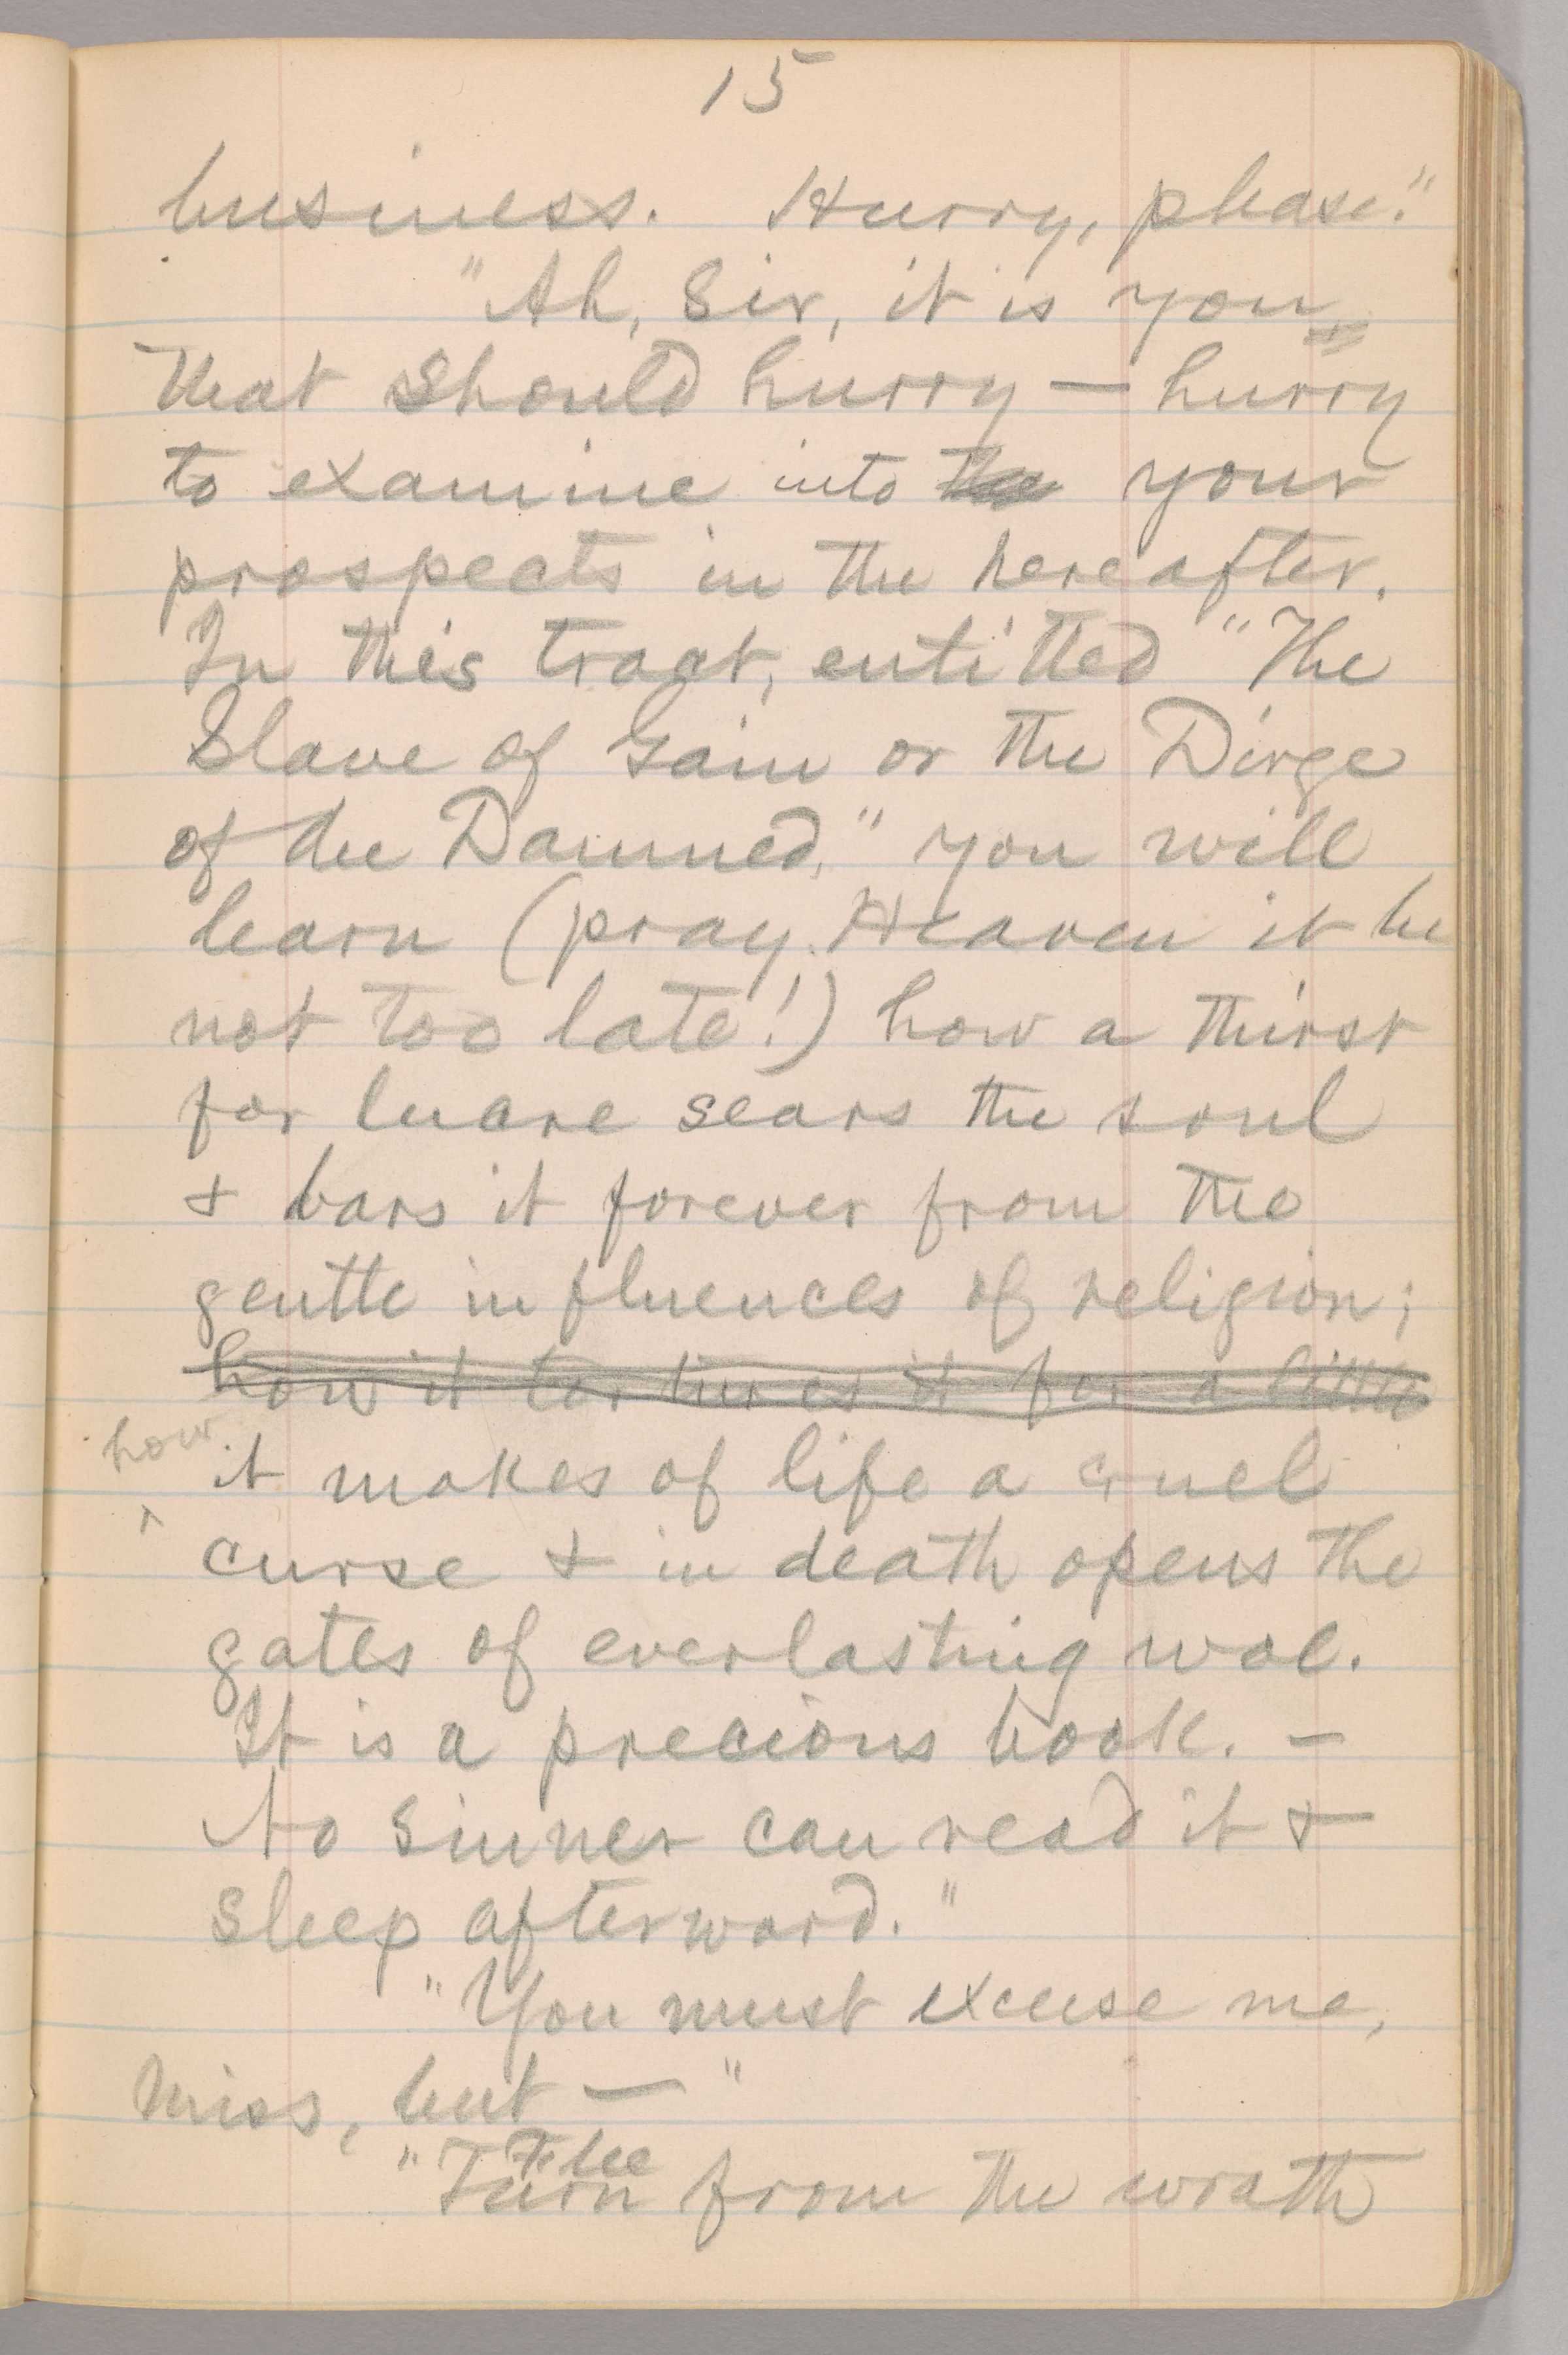 15
business. Hurry, please."
"Ah, Sir, it is you
that should hurry — hurry
to examine into the your
prospects in the hereafter.
In this tract, entitled "The
Slave of Gain or the Dirge
of the Damned," you will
learn (pray Heaven it be
not too late!) how a thirst
for lucre sears the soul
& bars it forever from the
gentle influences of religion;
how it tortures it for a little
how
it makes of life a cruel
curse & in death opens the
gates of everlasting woe.
It is a precious book. —
No Sinner can read it &
sleep afterward."
"You must excuse me,
Miss, but — "
Flee
"Turn from the wrath